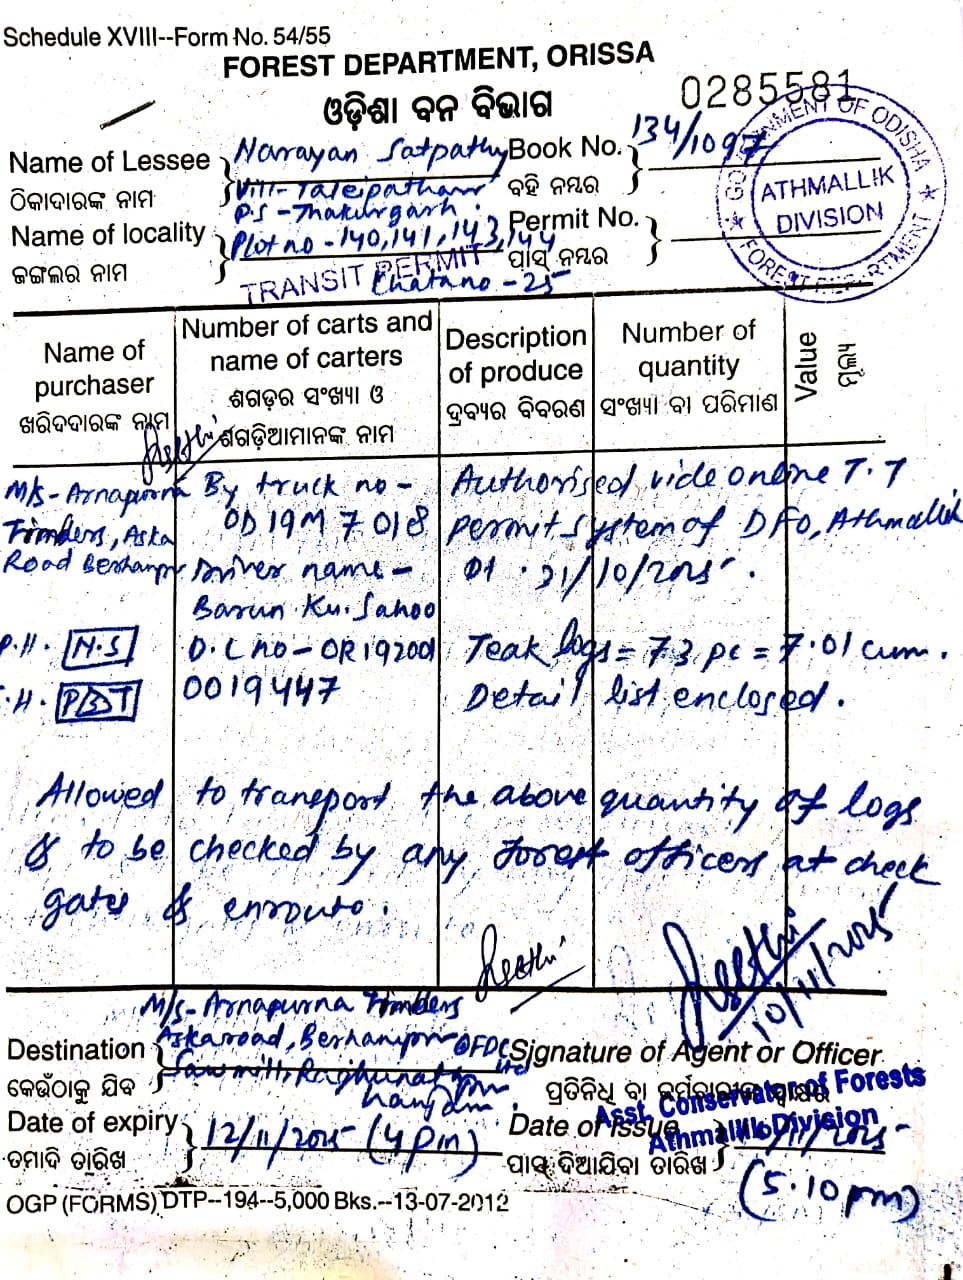 Schedule XVIII--Form No. 54/55
FOREST DEPARTMENT, ORISSA
ଓଡ଼ିଶା ବନ ବିଭାଗ
0285581
GOVERNMENT OF ODISHA
ATHMALLIK
DIVISION
FOREST DEPARTMENT
Name of Lessee
ଠିକାଦାରଙ୍କ ନାମ
Narayan Satpathy
Vill-
P.S -
Book No. 134/1097
ବହି ନମ୍ବର
Name of locality
ଜଙ୍ଗଲର ନାମ
Plot no - 140, 141, 143, 144
- 25
TRANSIT PERMIT
Permit No.
ପାସ୍ ନମ୍ବର
Name of purchaser
ଖରିଦଦାରଙ୍କ ନାମ
Number of carts and name of carters
ଶଗଡ଼ର ସଂଖ୍ୟା ଓ
ଶଗଡ଼ିଆମାନଙ୍କ ନାମ
Description of produce
ଦ୍ରବ୍ୟର ବିବରଣ
Number of quantity
ସଂଖ୍ୟା ବା ପରିମାଣ
Value
ମୂଲ୍ୟ
M/s - Arnapurna
Timbers, Aska
Road Berhampur
By truck no -
OD 19M 7018
Driver name -
Barun Ku. Sahoo
D.L no - OR192001
0019447
Authorised vide online T.T
permit system of DFO, Athmallik
Dt. 31/10/2025.
P.H. N.S
Teak logs = 73 pc = 7.01 cum.
Detail list enclosed.
Allowed to transport the above quantity of logs
& to be checked by any forest officers at check
gates & enroute.
10/11/2025
Destination
କେଉଁଠାକୁ ଯିବ
M/s - Arnapurna Timbers
Askaroad, Berhampur @ OFDC Ltd
Sawmill,
Signature of Agent or Officer
ପ୍ରତିନିଧି ବା କର୍ମଚାରୀଙ୍କ ସ୍ୱାକ୍ଷର
Asst. Conservator of Forests
Athmallik Division
Date of expiry
ତମାଦି ତାରିଖ
12/11/2025 (4 pm)
Date of Issue
ପାସ୍ ଦିଆଯିବା ତାରିଖ
(5.10 pm)
OGP (FORMS) DTP--194--5,000 Bks.--13-07-2012